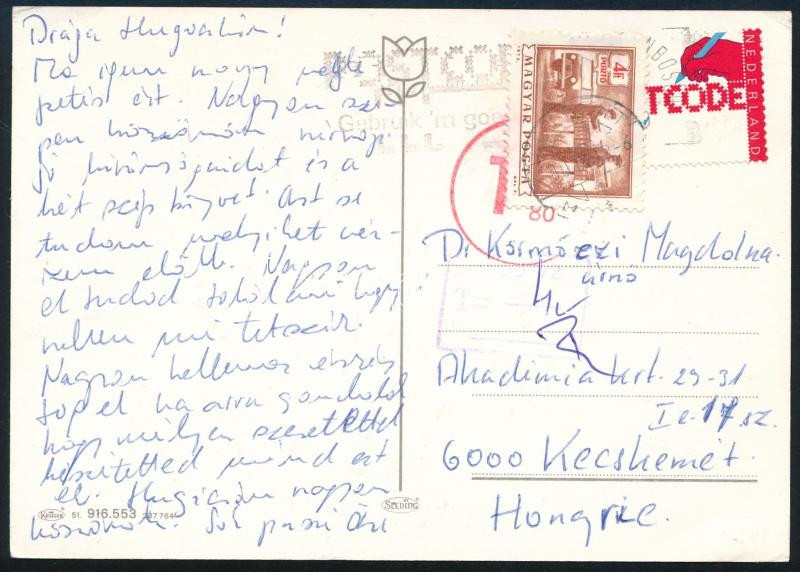 Drága Hugocskám!
Ma igen nagy megle-
petés ért. Nagyon szé-
pen köszönöm
jó kívánságaidat és a
két szép könyvet. Azt se
tudom melyiket vé-
gyem előbb. Nagyon
el tudod találni hogy
nekem mi tetszik.
Nagyon kellemes érzés
fog el ha arra gondolok
hogy milyen szeretettel
készítetted mind ezt
el. Hugicám nagyon
köszönöm. Sok puszi
KRÜGER 51. 916.553 237764
SEEDING
Gebruik 'm goed
4Ft PORTÓ
MAGYAR POSTA
NEDERLAND
TCODE
T
80
T=
Dr Körmöczi Magdolna
úrnő
Akadémia krt. 29-31
I e. 17 sz.
6000 Kecskemét
Hongrie.